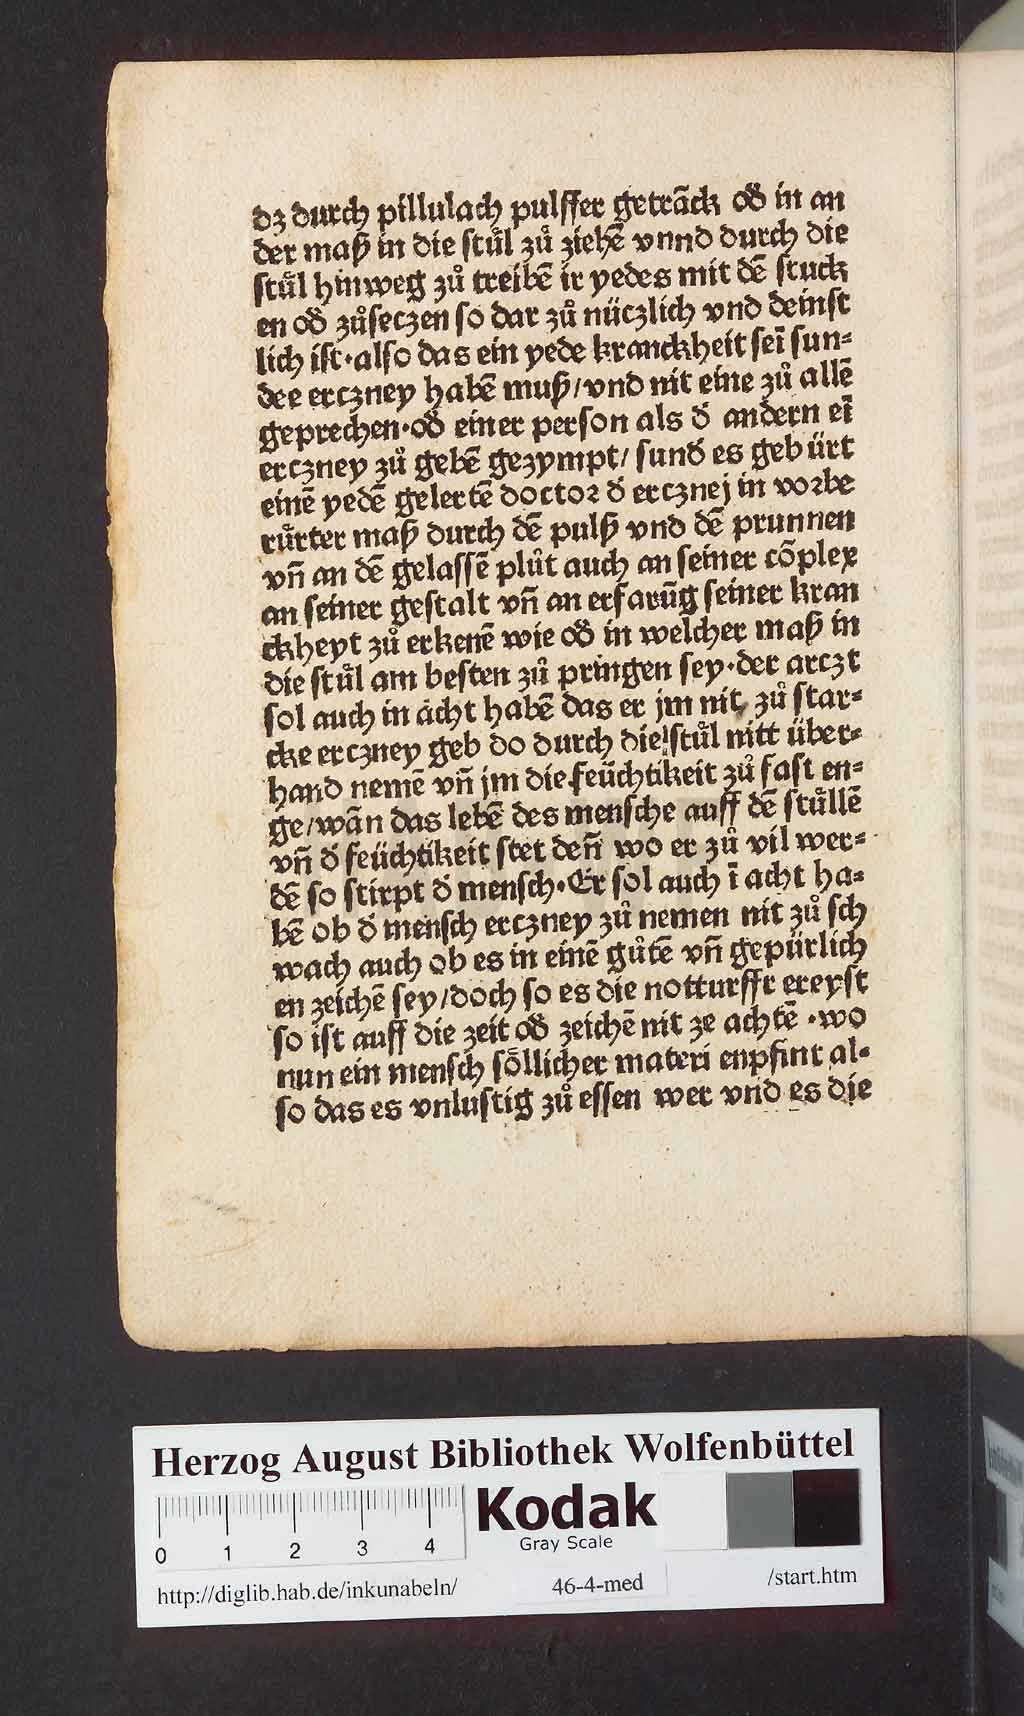 dz durch pillulach pulffer geträck od̕ in an
der maß in die stůl zů ziehē vnnd durch die
stůl hinweg zů treibē ir yedes mit dē stuck
en od̕ zůseczen so dar zů nüczlich vnd deinst
lich ist·also das ein yede kranckheit seī sun⸗
dee erczney habē muß/vnd nit eine zů allē
geprechen·od̕ einer person als d̕ andern eī
erczney zů gebē gezympt/ sund̕ es gebürt
einē yedē gelertē doctor d̕ ercznej in vorbe
růrter maß durch dē pulß vnd dē prunnen
vn̄ an dē gelassē plůt auch an seiner cōplex
an seiner gestalt vn̄ an erfarūg seiner kran
ckheyt zů erkenē wie od̕ in welcher maß in
die stůl am besten zů pringen sey·der arczt
sol auch in ácht habē das er jm nit zů star⸗
cke erczney geb do durch die stůl nitt über⸗
hand nemē vn̄ jm die feüchtikeit zů fast en⸗
ge/wān das lebē des mensche auff dē stůllē
vn̄ d̕ feüchtikeit stet den̄ wo er zů vil wer⸗
dē so stirpt d̕ mensch·Er sol auch ī acht ha⸗
bē ob d̕ mensch erczney zů nemen nit zů sch
wach auch ob es in einē gůtē vn̄ gepürlich
en zeichē sey/doch so es die notturfft ereyst
so ist auff die zeit od̕ zeichē nit ze achtē ·wo
nun ein mensch söllicher materi enpfint al⸗
so das es vnlustig zů essen wer vnd es die
Herzog August Bibliothek Wolfenbüttel
0 1 2 3 4
Kodak
Gray Scale
http://diglib.hab.de/inkunabeln/ 46-4-med /start.htm